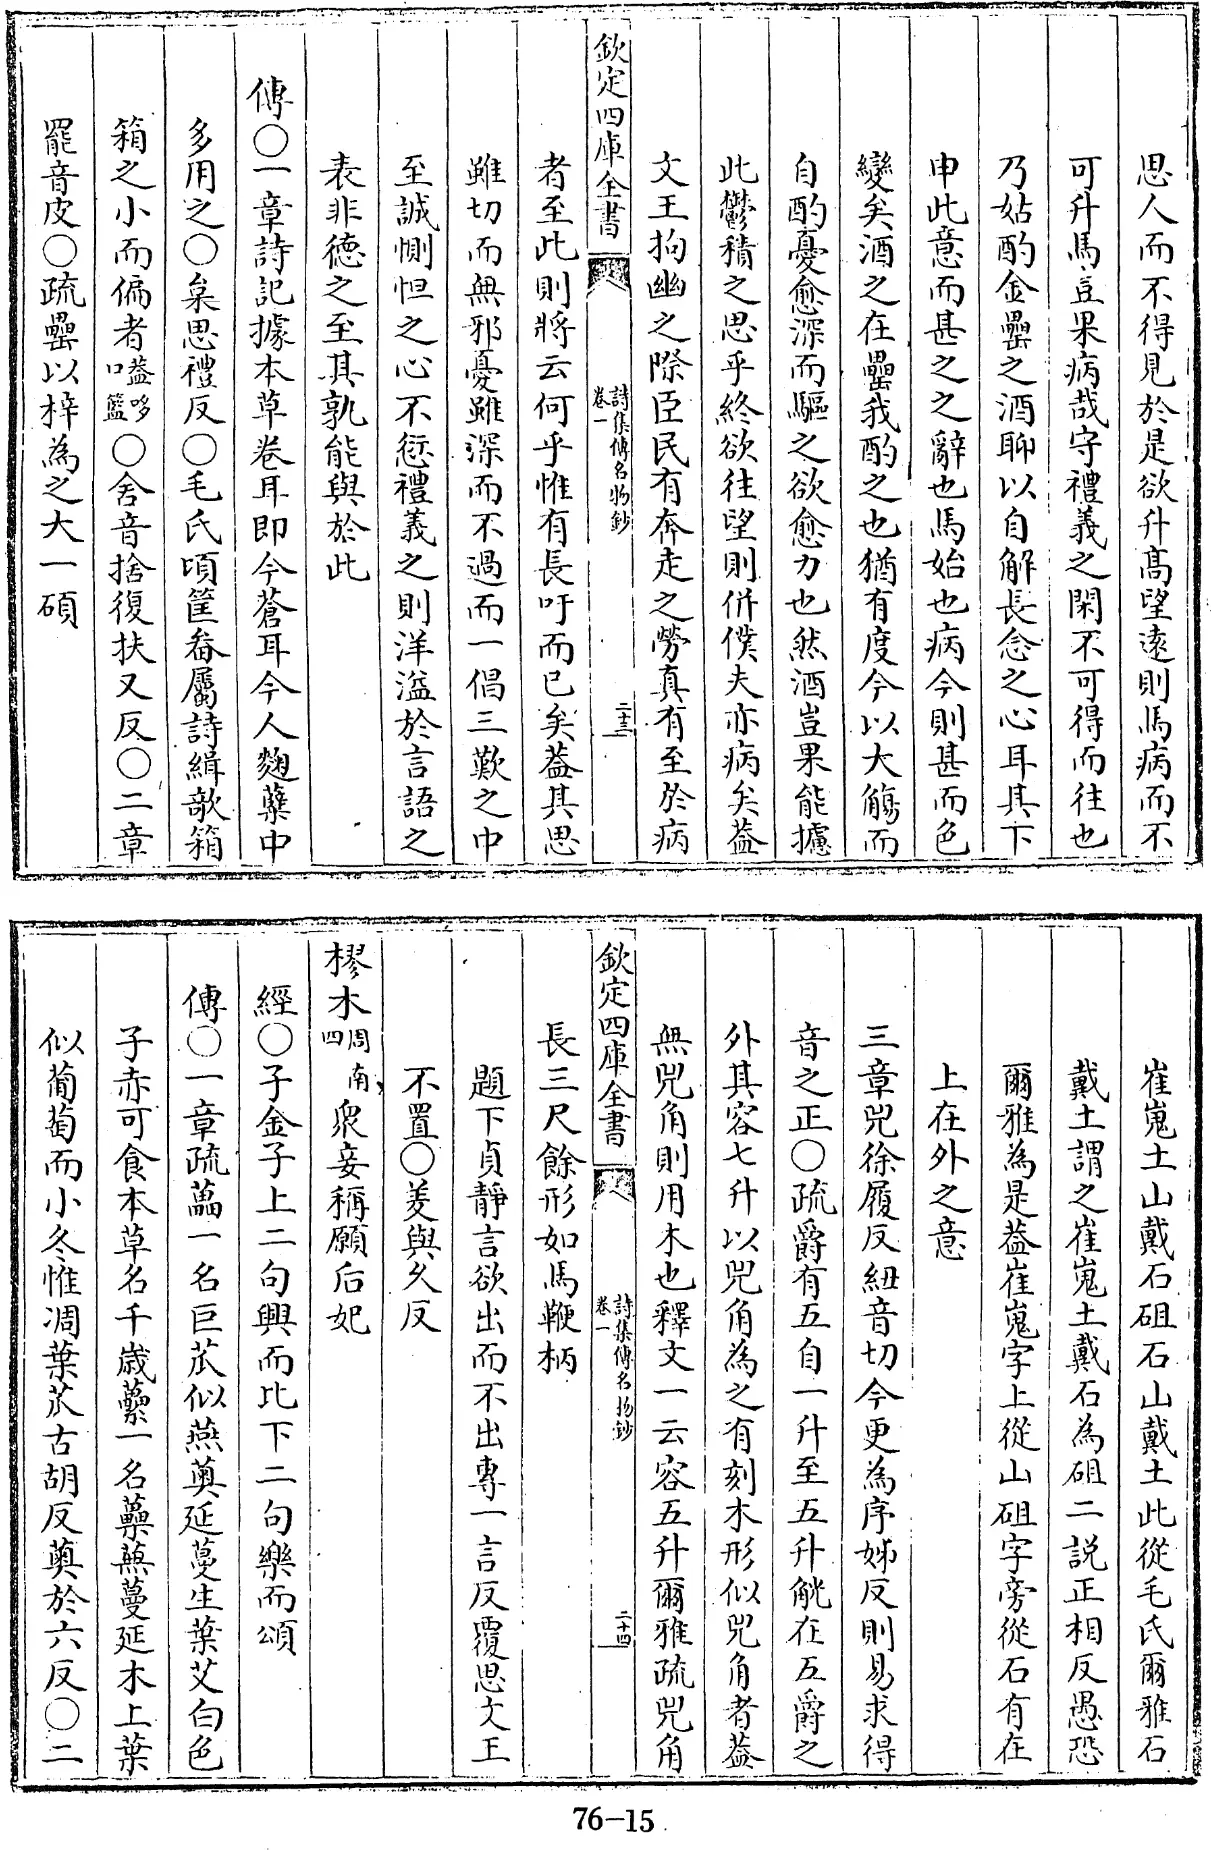 思人而不得見於是欲升髙望逺則馬病而不
可升馬豈果病哉守禮義之閑不可得而往也
乃姑酌金罍之酒聊以自解長念之心耳其下
申此意而甚之之辭也馬始也病今則甚而色
變矣酒之在罍我酌之也猶有度今以大觴而
自酌憂愈深而驅之欲愈力也然酒豈果能攄
此鬱積之思乎終欲往望則併僕夫亦病矣葢
文王拘幽之際臣民有奔走之勞真有至於病
欽定四庫全書
詩集傳名物鈔
卷一
二十三
者至此則將云何乎惟有長吁而已矣葢其思
雖切而無邪憂雖深而不過而一倡三歎之中
至誠惻怛之心不愆禮義之則洋溢於言語之
表非德之至其孰能與於此
傳○一章詩記據本草卷耳即今蒼耳今人麴糵中
多用之○枲思禮反○毛氏頃筐畚屬詩緝欹箱
箱之小而偏者嗑哆
籃○舍音捨復扶又反○二章
罷音皮○疏罍以梓為之大一碩
崔嵬土山戴石砠石山戴土此從毛氏爾雅石
戴土謂之崔嵬土戴石為砠二説正相反愚恐
爾雅為是葢崔嵬字上從山砠字旁從石有在
上在外之意
三章兕徐履反紐音切今更為序姊反則易求得
音之正○疏爵有五自一升至五升觥在五爵之
外其容七升以兕角為之有刻木形似兕角者葢
無兕角則用木也釋文一云容五升爾雅疏兕角
欽定四庫全書
詩集傳名物鈔
卷一
二十四
長三尺餘形如馬鞭柄
題下貞靜言欲出而不出專一言反覆思文王
不置○羑與久反
樛木周南四衆妾稱願后妃
經○子金子上二句興而比下二句樂而頌
傳○一章疏藟一名巨苽似燕薁延蔓生葉艾白色
子赤可食本草名千歲虆一名虆蕪蔓延木上葉
似葡萄而小冬惟凋葉苽古胡反薁於六反○二
76-15